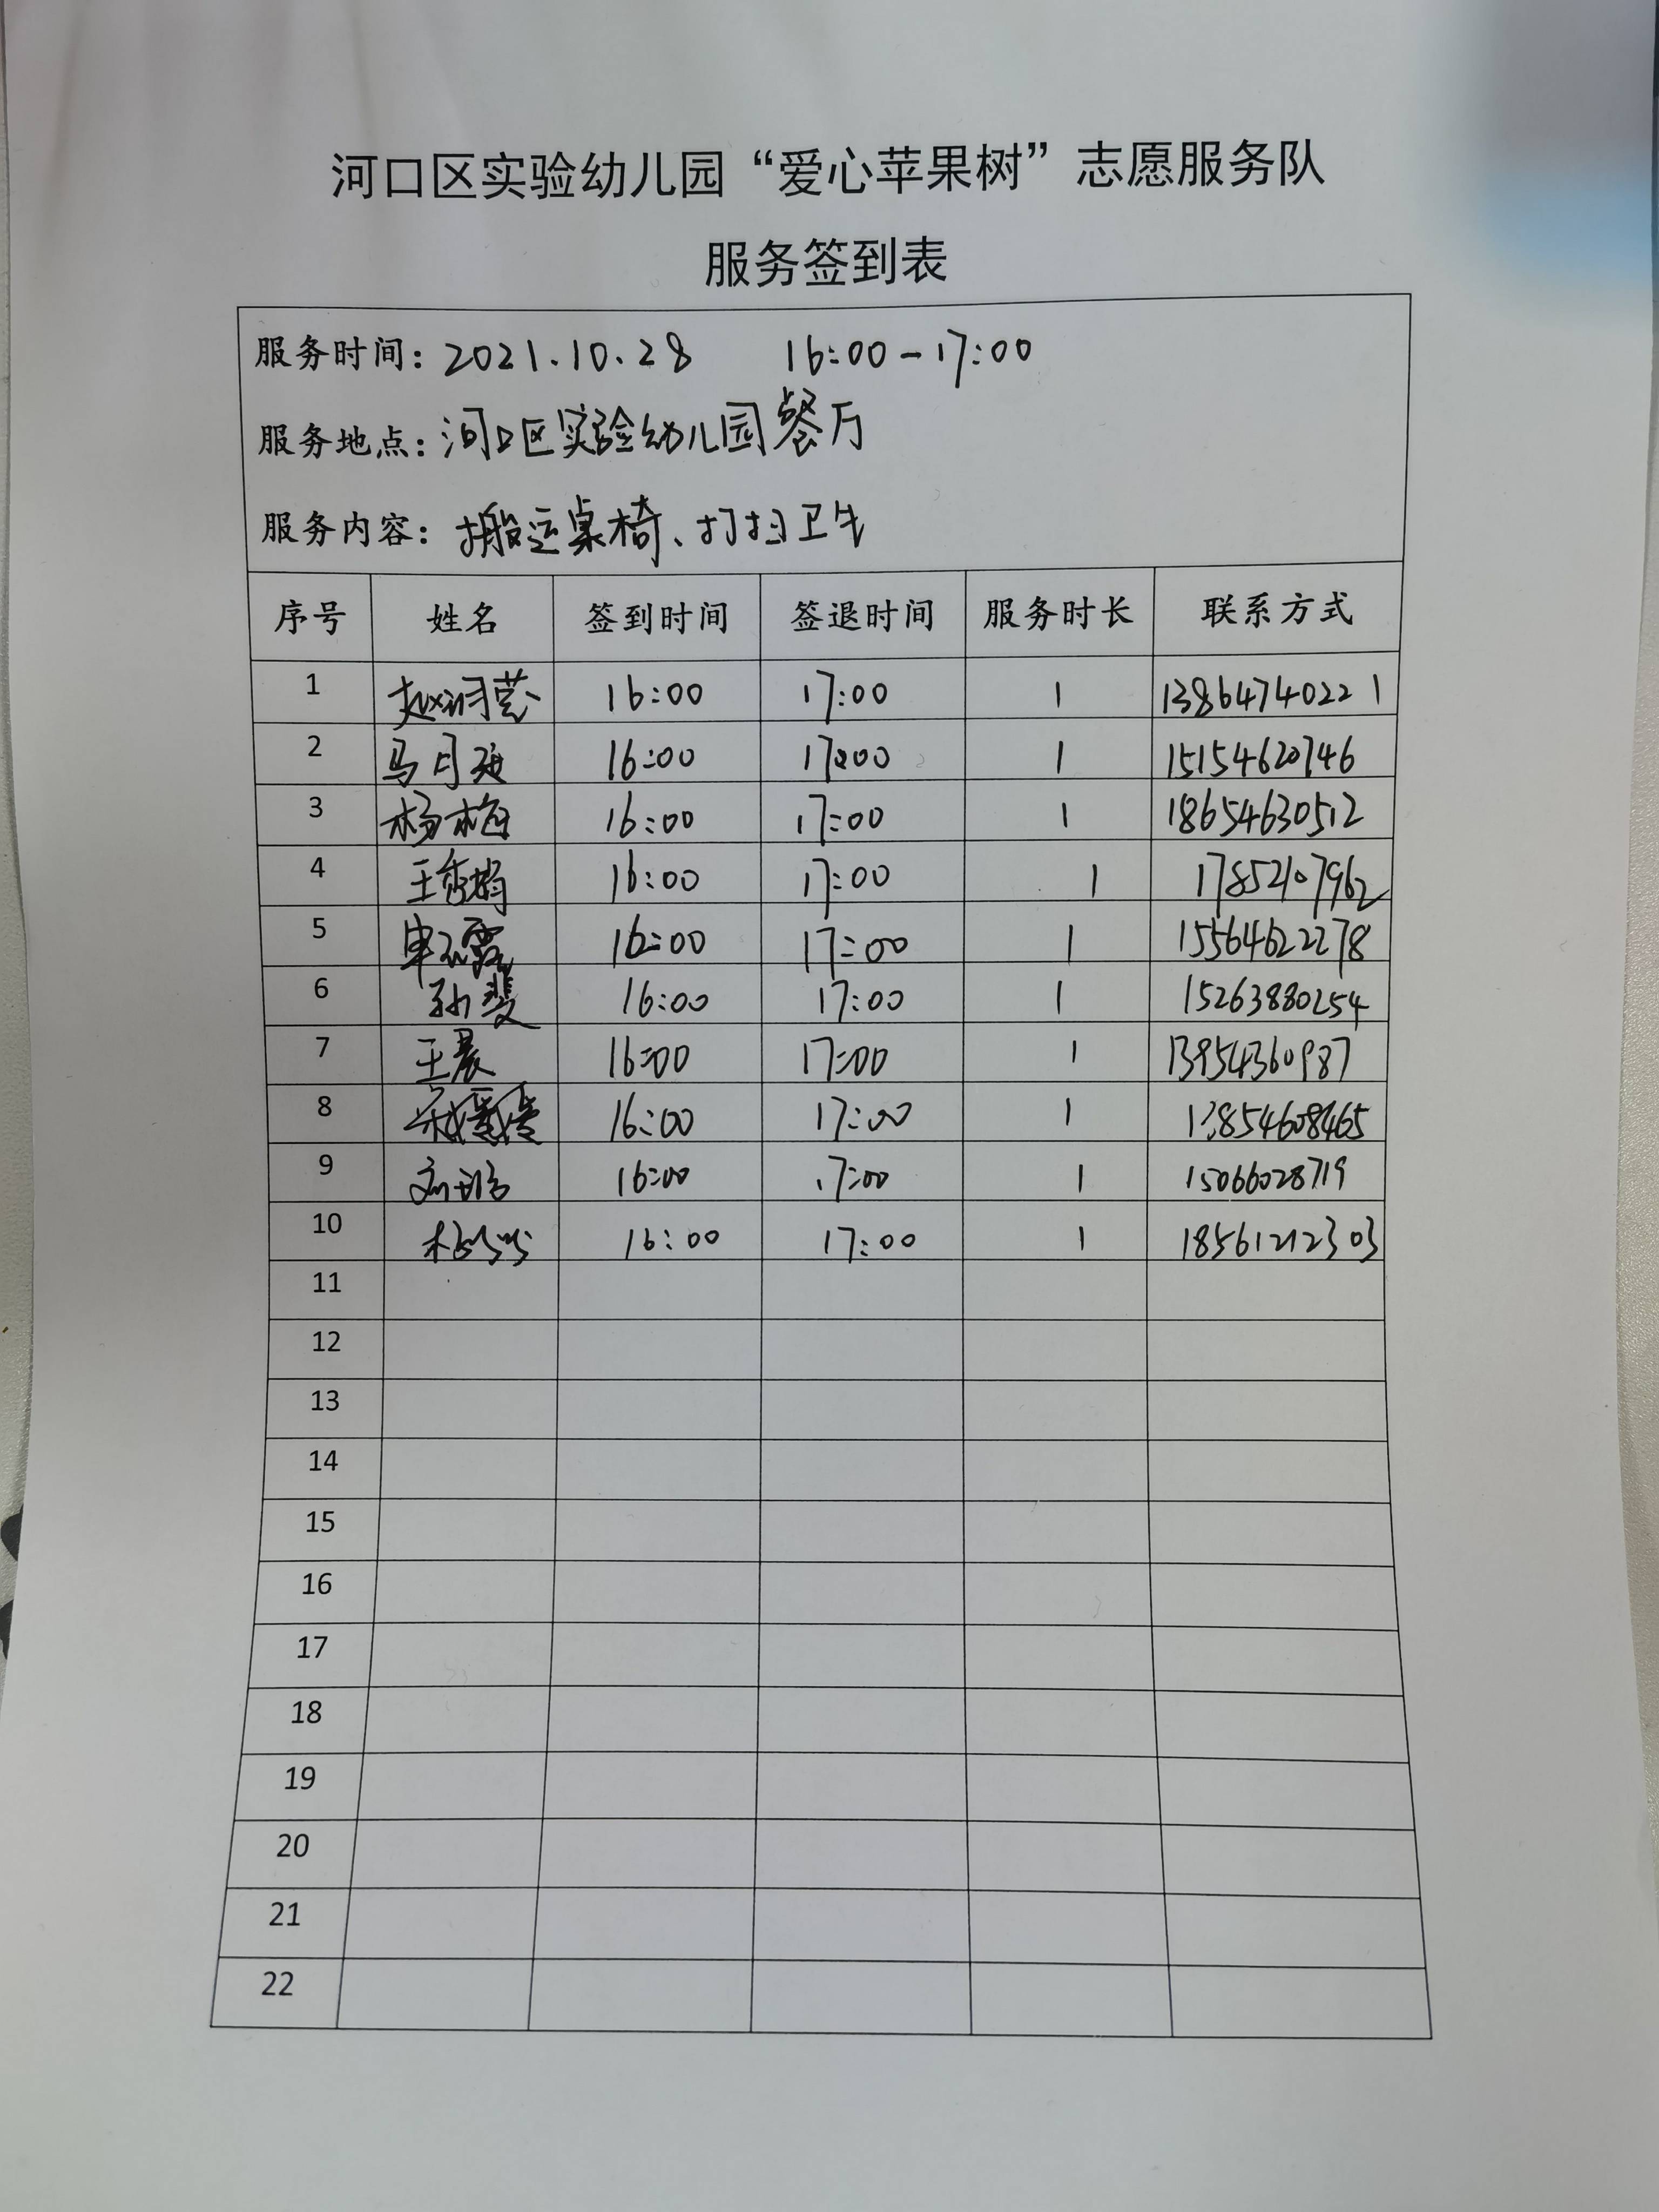 河口区实验幼儿园“爱心苹果树”志愿服务队
服务签到表
服务时间：2021.10.28 16:00-17:00
服务地点：河口区实验幼儿园餐厅
服务内容：搬运桌椅、打扫卫生
序号 姓名 签到时间 签退时间 服务时长 联系方式
1 赵 16:00 17:00 1 13864740221
2 马月 16:00 17:00 1 15154620746
3 杨梅 16:00 17:00 1 18654630512
4 王 16:00 17:00 1 17852107962
5 16:00 17:00 1 15564622278
6 孙斐 16:00 17:00 1 15263880254
7 王晨 16:00 17:00 1 13954360987
8 16:00 17:00 1 13854608465
9 16:00 17:00 1 15066028719
10 16:00 17:00 1 18561212303
11
12
13
14
15
16
17
18
19
20
21
22